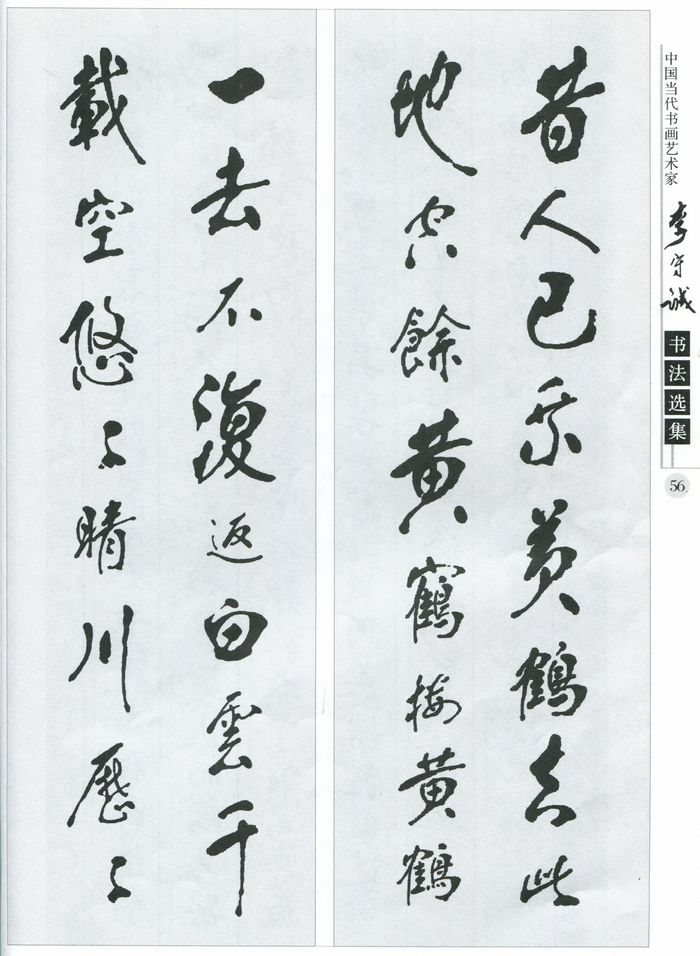 昔人已乘黃鶴去此
地空餘黃鶴樓黃鶴
一去不復返白雲千
載空悠〻晴川歷〻
中国当代书画艺术家
李守诚
书法选集
56